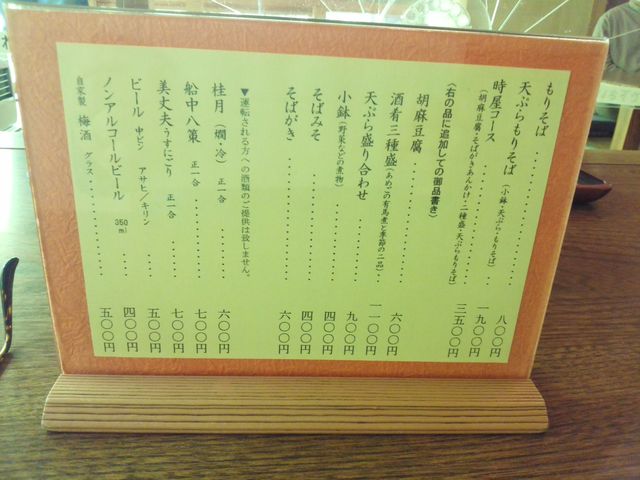 もりそば ‥‥‥‥‥‥ 八〇〇円
天ぷらもりそば (小鉢・天ぷら・もりそば) 一九〇〇円
時屋コース ‥‥‥‥‥‥ 三五〇〇円
(胡麻豆腐・そばがきあんかけ・二種盛・天ぷらもりそば)
〈右の品に追加しての御品書き〉
胡麻豆腐 ‥‥‥‥‥‥ 六〇〇円
酒肴三種盛 (あめごの有馬煮と季節の二品) 一一〇〇円
天ぷら盛り合わせ ‥‥‥‥‥‥ 九〇〇円
小鉢 (野菜などの煮物) ‥‥‥‥‥‥ 四〇〇円
そばみそ ‥‥‥‥‥‥ 四〇〇円
そばがき ‥‥‥‥‥‥ 六〇〇円
▼運転される方への酒類のご提供は致しません。
桂月 (燗・冷) 正一合 ‥‥‥ 六〇〇円
船中八策 正一合 ‥‥‥ 七〇〇円
美丈夫うすにごり 正一合 ‥‥‥ 七〇〇円
ビール 中ビン アサヒ／キリン ‥‥‥ 五〇〇円
ノンアルコールビール 350ml ‥‥‥ 四〇〇円
自家製 梅酒 グラス ‥‥‥‥‥‥ 五〇〇円